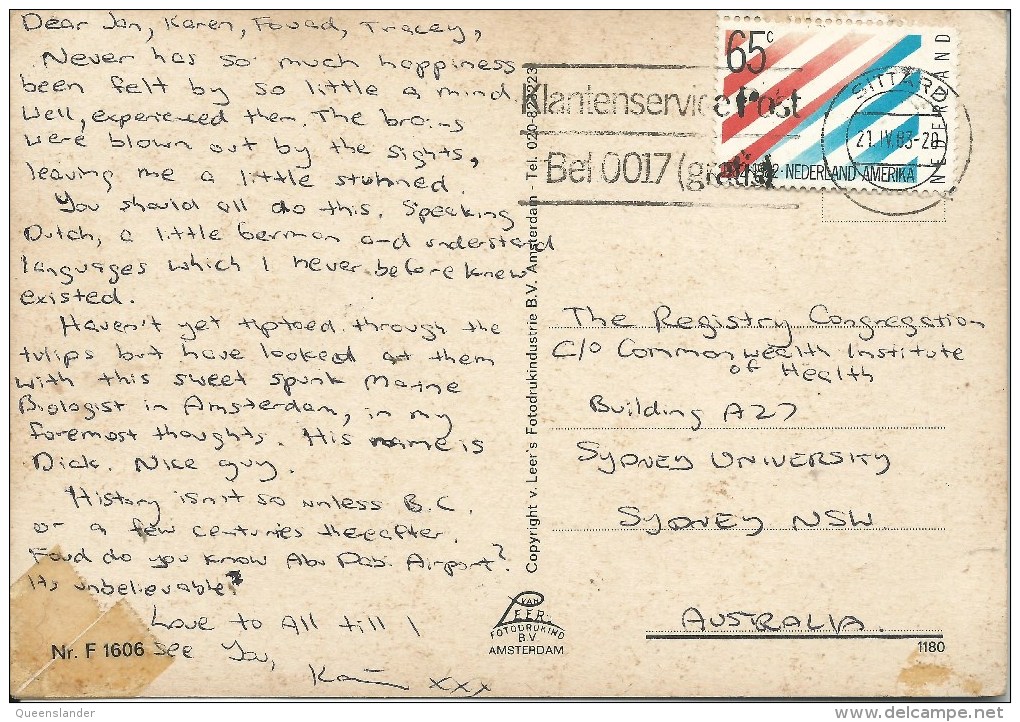 Dear Jan, Karen, Fouad, Tracey,
Never has so much happiness
been felt by so little a mind
Well, experienced them. The brains
were blown out by the sights,
leaving me a little stunned.
You should all do this. Speaking
Dutch, a little German and understand
languages which I never before knew
existed.
Haven't yet tiptoed through the
tulips but have looked at them
with this sweet spunk Marine
Biologist in Amsterdam, in my
foremost thoughts. His name is
Dick. Nice guy.
History isn't so unless B.C.
or a few centuries thereafter.
Foud do you know Abu Dabi Airport?
Its unbelievable?
Love to All till I
see You,
xxx
Nr. F 1606
Copyright v. Leer's Fotodrukindustrie B.V. Amsterdam - Tel. 020-
VAN
LEER
FOTODRUKIND
B.V.
AMSTERDAM
65c
NEDERLAND
NEDERLAND-AMERIKA
Klantenservice Post
Bel 0017 (gratis)
SITTARD
21.IV.83-20
The Registry Congregation
C/O Commonwealth Institute
of Health
Building A27
SYDNEY UNIVERSITY
SYDNEY NSW.
AUSTRALIA.
1180
Queenslander
delcampe.net